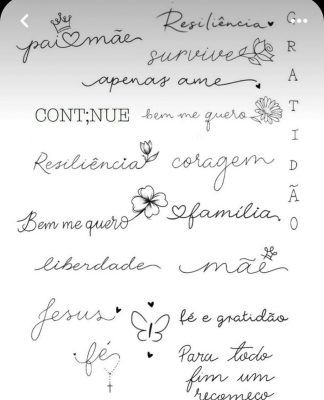 pai mãe
Resiliência
survive
apenas ame
CONT;NUE
bem me quero
GRATIDÃO
Resiliência
coragem
Bem me quero
família
liberdade
mãe
Jesus
fé e gratidão
fé
Para todo
fim um
recomeço